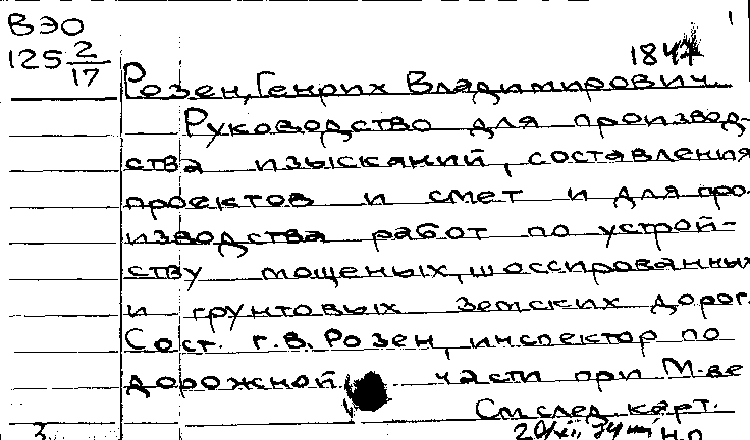 ВЭО
1
125 2/17
1847
Розен, Генрих Владимирович.
Руководство для производ-
ства изысканий, составления
проектов и смет и для про-
изводства работ по устрой-
ству мощеных, шоссированных
и грунтовых земских дорог.
Сост. Г.В. Розен, инспектор по
дорожной части при М-ве
См след. карт.
3.
20/XII 34